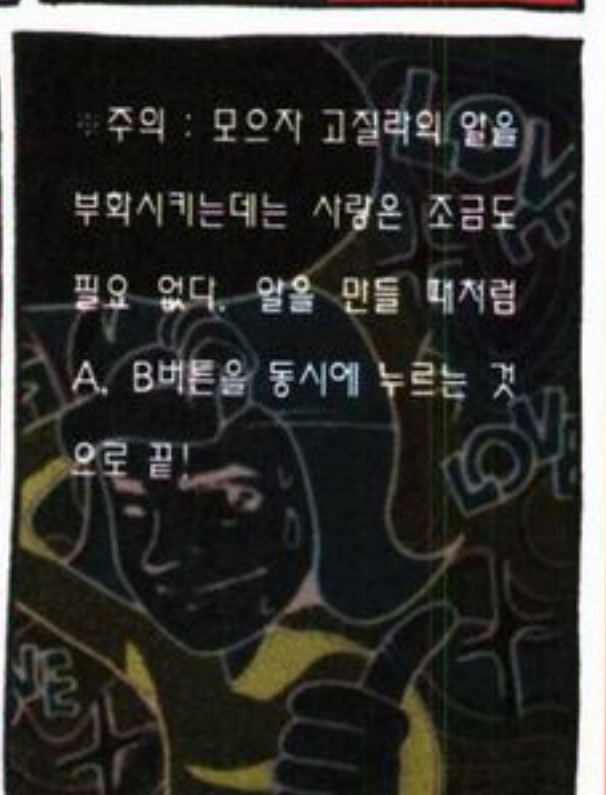 ※주의 : 모으자 고질라의 알을
부화시키는데는 사랑은 조금도
필요 없다. 알을 만들 때처럼
A, B버튼을 동시에 누르는 것
으로 끝!
LOVE
LOVE
VE